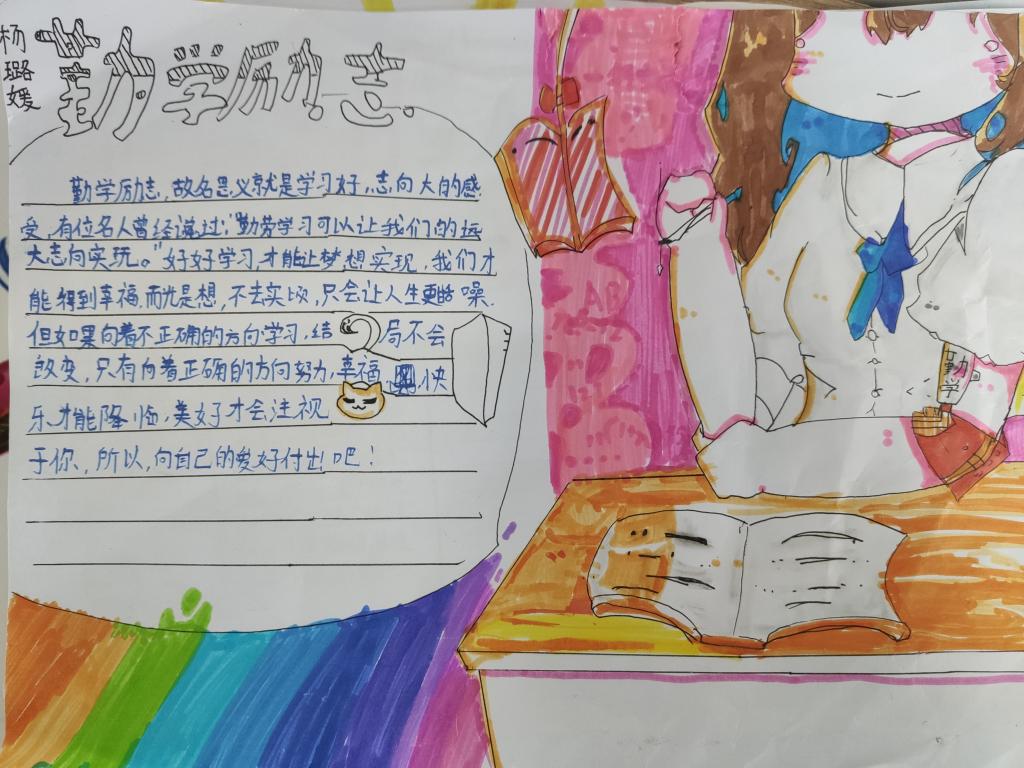 杨璐媛
勤学励志
勤学励志，故名思义就是学习好，志向大的感
受，有位名人曾经说过："勤劳学习可以让我们的远
大志向实现。"好好学习，才能让梦想实现，我们才
能得到幸福，而光是想，不去实
，只会让人生更
噪．
但如果向着不正确的方向学习，结局不会
改变，只有向着正确的方向努力，幸福
，快
乐，才能降临，美好才会注视
于你，所以，向自己的爱好付出吧！
AB
勤学